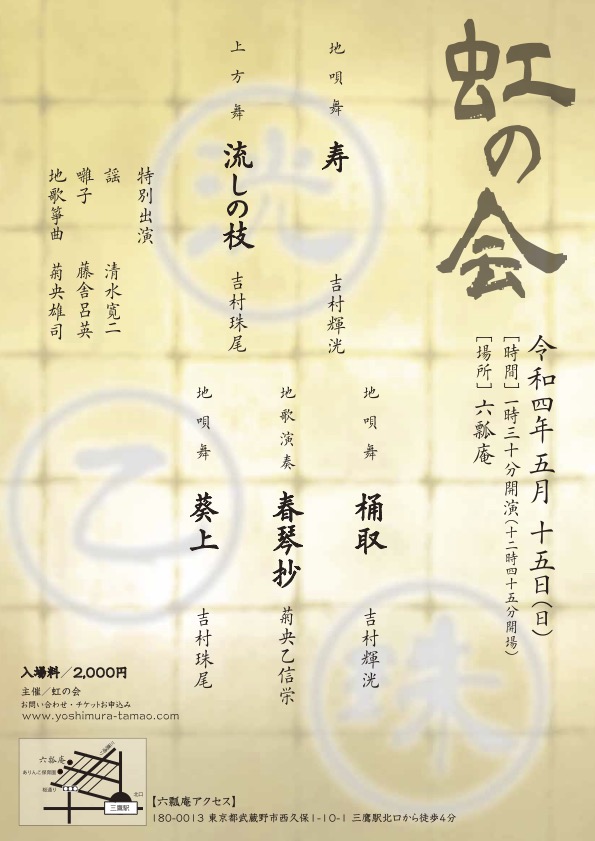 虹の会
令和四年 五月 十五日(日)
[時間] 一時三十分開演(十二時四十五分開場)
[場所] 六瓢庵
地唄舞 寿 吉村輝洸
上方舞 流しの枝 吉村珠尾
特別出演
謡 清水寛二
囃子 藤舎呂英
地歌箏曲 菊央雄司
地唄舞 桶取 吉村輝洸
地歌演奏 春琴抄 菊央乙信栄
地唄舞 葵上 吉村珠尾
洸
乙
珠
入場料/2,000円
主催/虹の会
お問い合わせ・チケットお申込み
www.yoshimura-tamao.com
六瓢庵
ありんこ保育園
桜通り
北口
三鷹駅
【六瓢庵アクセス】
180-0013 東京都武蔵野市西久保1-10-1 三鷹駅北口から徒歩4分